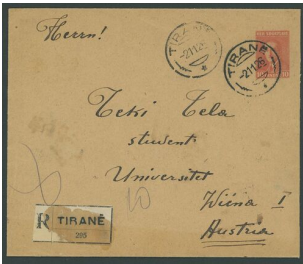 Herrn!
TIRANË
-2.11.26
TIRANË
-2.11.26
Zeki Zela
student
Universitet
Wiéna I
Austria
R TIRANË
295
10